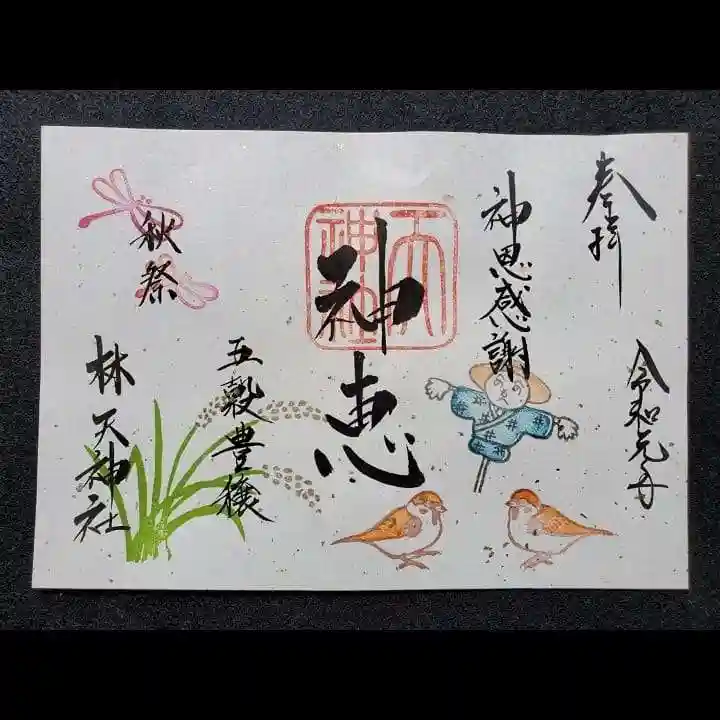 奉拝
令和元年
神恩感謝
神恵
天
神社
五穀豊穣
秋祭
林天神社